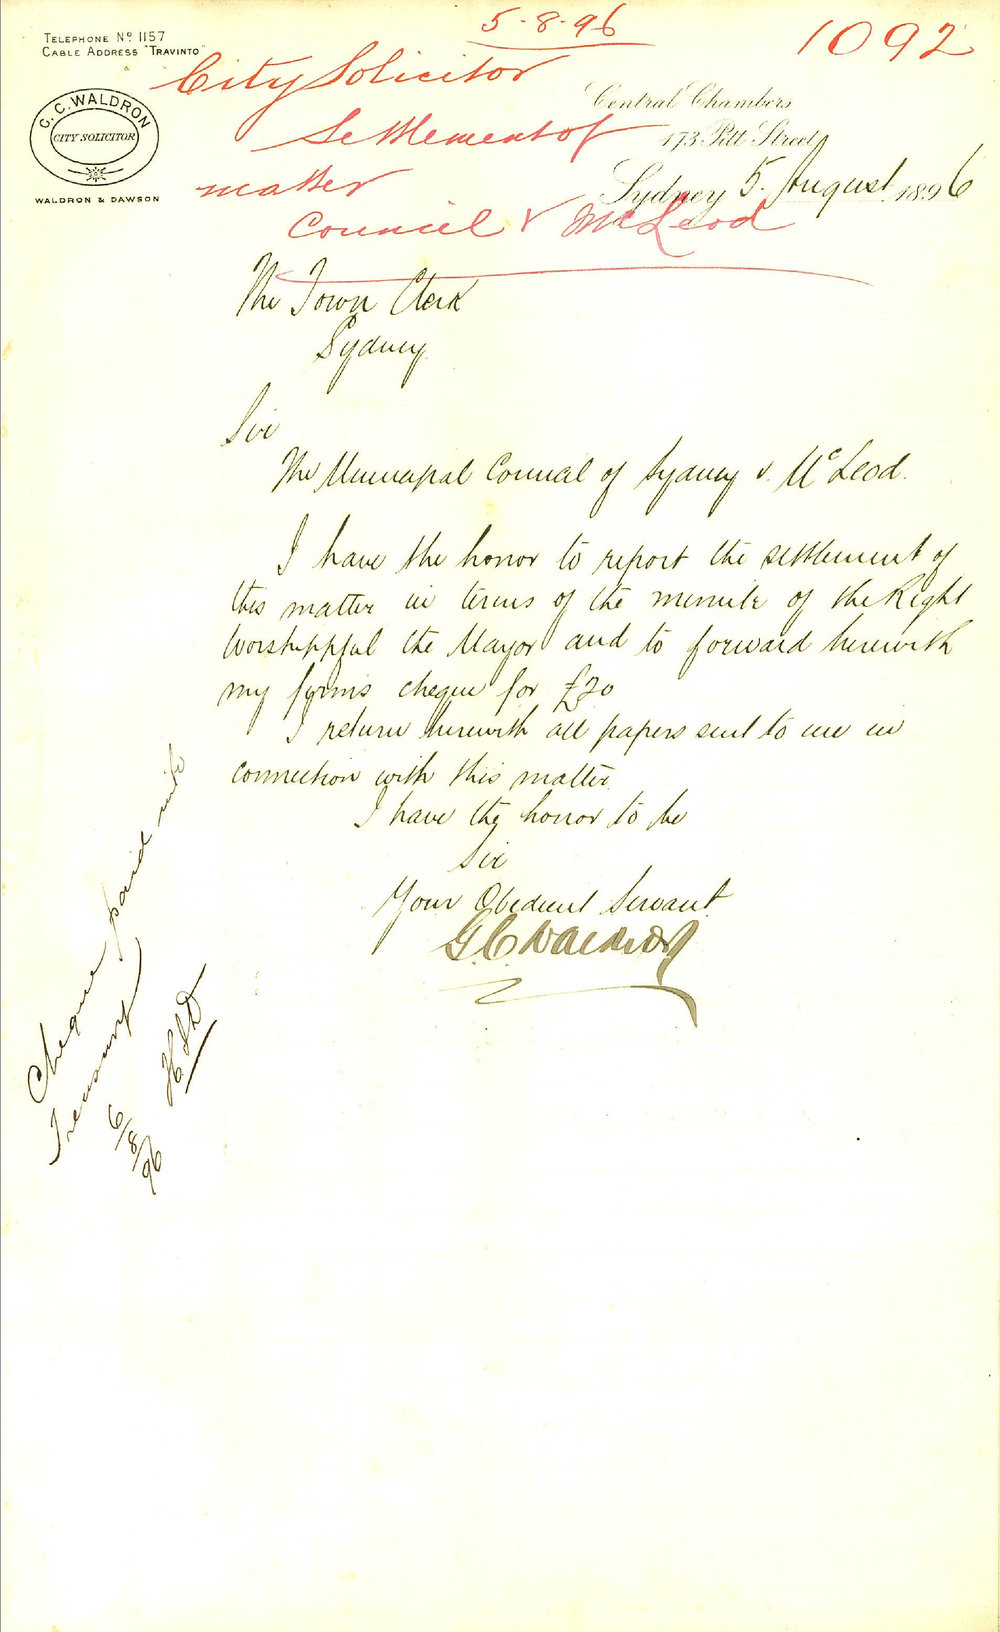 TELEPHONE Nº 1157
CABLE ADDRESS "TRAVINTO"
G. C. WALDRON
CITY SOLICITOR
WALDRON & DAWSON
5-8-96
1092
City Solicitor
Settlement of
matter
Council v McLeod
Central Chambers
173 Pitt Street
Sydney 5. August 1896
The Town Clerk
Sydney
Sir
The Municipal Council of Sydney v. McLeod.
I have the honor to report the settlement of
this matter in terms of the minute of the Right
Worshippful the Mayor and to forward herewith
my firms cheque for £20
I return herewith all papers sent to me in
connection with this matter.
I have the honor to be
Sir
Your Obedient Servant
G. C. Waldron
Cheque paid into
Treasury
6/8/96